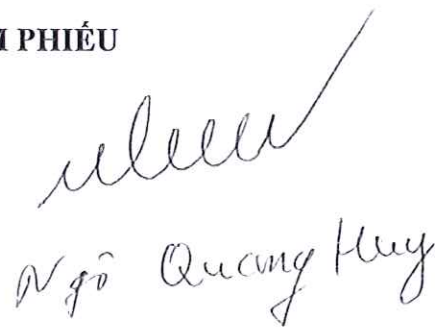 PHIẾU
Ngô Quang Huy